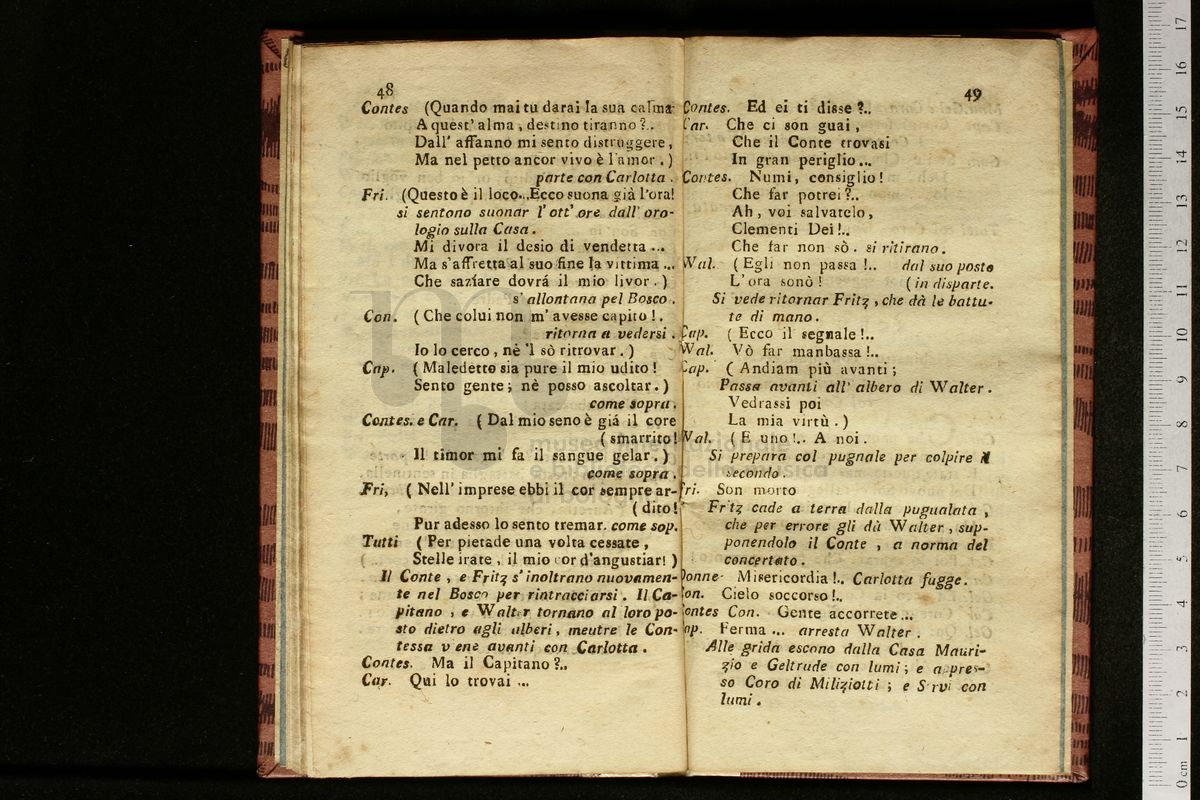 48
Contes (Quando mai tu darai la sua calma
A quest' alma, destino tiranno?..
Dall' affanno mi sento distruggere,
Ma nel petto ancor vivo è l'amor.)
parte con Carlotta.
Fri. (Questo è il loco...Ecco suona già l'ora!
si sentono suonar l'ott' ore dall' oro-
logio sulla Casa.
Mi divora il desio di vendetta ...
Ma s'affretta al suo fine la vittima ...
Che saziare dovrá il mio livor.)
s' allontana pel Bosco.
Con. (Che colui non m' avesse capito!.
ritorna a vedersi.
Io lo cerco, nè 'l sò ritrovar.)
Cap. (Maledetto sia pure il mio udito!
Sento gente; nè posso ascoltar.)
come sopra.
Contes. e Car. (Dal mio seno è giá il core
(smarrito!
Il timor mi fa il sangue gelar.)
come sopra.
Fri, (Nell' imprese ebbi il cor sempre ar-
(dito!
Pur adesso lo sento tremar. come sop.
Tutti (Per pietade una volta cessate,
Stelle irate, il mio cor d'angustiar!)
Il Conte, e Fritz s'inoltrano nuovamen-
te nel Bosco per rintracciarsi. Il Ca-
pitano, e Walter tornano al loro po-
sto dietro agli alberi, meutre le Con-
tessa v ene avanti con Carlotta.
Contes. Ma il Capitano?..
Car. Qui lo trovai ...
49
Contes. Ed ei ti disse?..
Car. Che ci son guai,
Che il Conte trovasi
In gran periglio...
Contes. Numi, consiglio!
Che far potrei?..
Ah, voi salvatelo,
Clementi Dei!..
Che far non sò. si ritirano.
Wal. (Egli non passa!.. dal suo posto
L'ora sonò! (in disparte.
Si vede ritornar Fritz, che dà le battu-
te di mano.
Cap. (Ecco il segnale!..
Wal. Vò far manbassa!..
Cap. (Andiam più avanti;
Passa avanti all' albero di Walter.
Vedrassi poi
La mia virtù.)
Wal. (E uno!.. A noi.
Si prepara col pugnale per colpire il
secondo.
Fri. Son morto
Fritz cade a terra dalla pugualata,
che per errore gli dà Walter, sup-
ponendolo il Conte, a norma del
concertato.
Donne Misericordia!.. Carlotta fugge.
Con. Cielo soccorso!..
Contes Con. Gente accorrete...
Cap. Ferma ... arresta Walter.
Alle grida escono dalla Casa Mauri-
zio e Geltrude con lumi; e appres-
so Coro di Miliziotti; e S rvi con
lumi.
museo internazionale
e biblioteca della musica
di bologna
0 cm 1 2 3 4 5 6 7 8 9 10 11 12 13 14 15 16 17